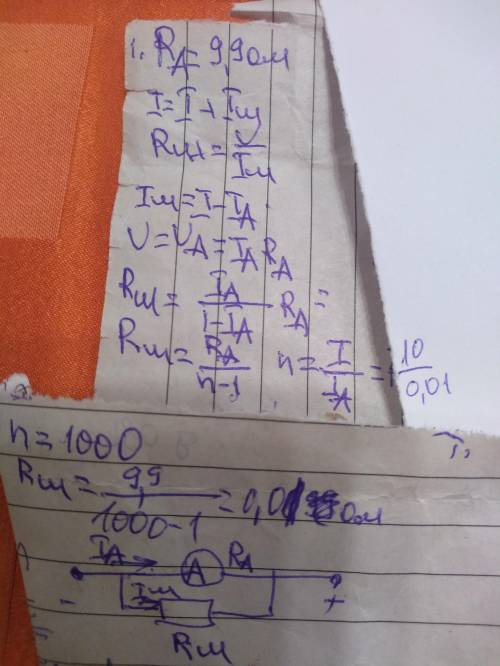 1. R_A = 9,9 Ом
I = I + I_ш
R_ш = U/I_ш
I_ш = I - I_A
U = U_A = I_A R_A
R_ш = I_A/(I - I_A) R_A =
R_ш = R_A/(n-1) n = I/I_A = 10/0,01
n = 1000
R_ш = 9,9/(1000-1) = 0,01 Ом
I_A A R_A
I_ш
- +
R_ш